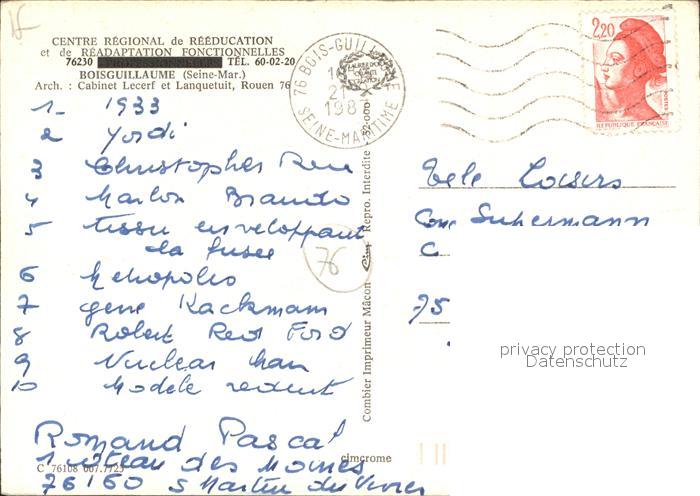 CENTRE RÉGIONAL de RÉÉDUCATION
et de RÉADAPTATION FONCTIONNELLES
76230 TÉL. 60-02-20
BOISGUILLAUME (Seine-Mar.)
Arch. : Cabinet Lecerf et Lanquetuit, Rouen 76
1 1933
2 Yordi
3 Christopher Reeve
4 Marlon Brando
5 tissu enveloppant
la fusée
6 Metropolis
7 gene Kackmam
8 Robert Red Ford
9 Nuclear Man
10 Modele reduit
Romand Pascal
1 des Moines
76160 S Martin du Vivier
C 76108 007.7723
cimcrome
Combier Imprimeur Mâcon Cim Repro. Interdite - 32-000
76
76 BOIS-GUILL
21
198
SEINE-MARITIME
2,20
POSTES
REPUBLIQUE FRANÇAISE
Tele Loisirs
Suhermann
C
75
privacy protection
Datenschutz